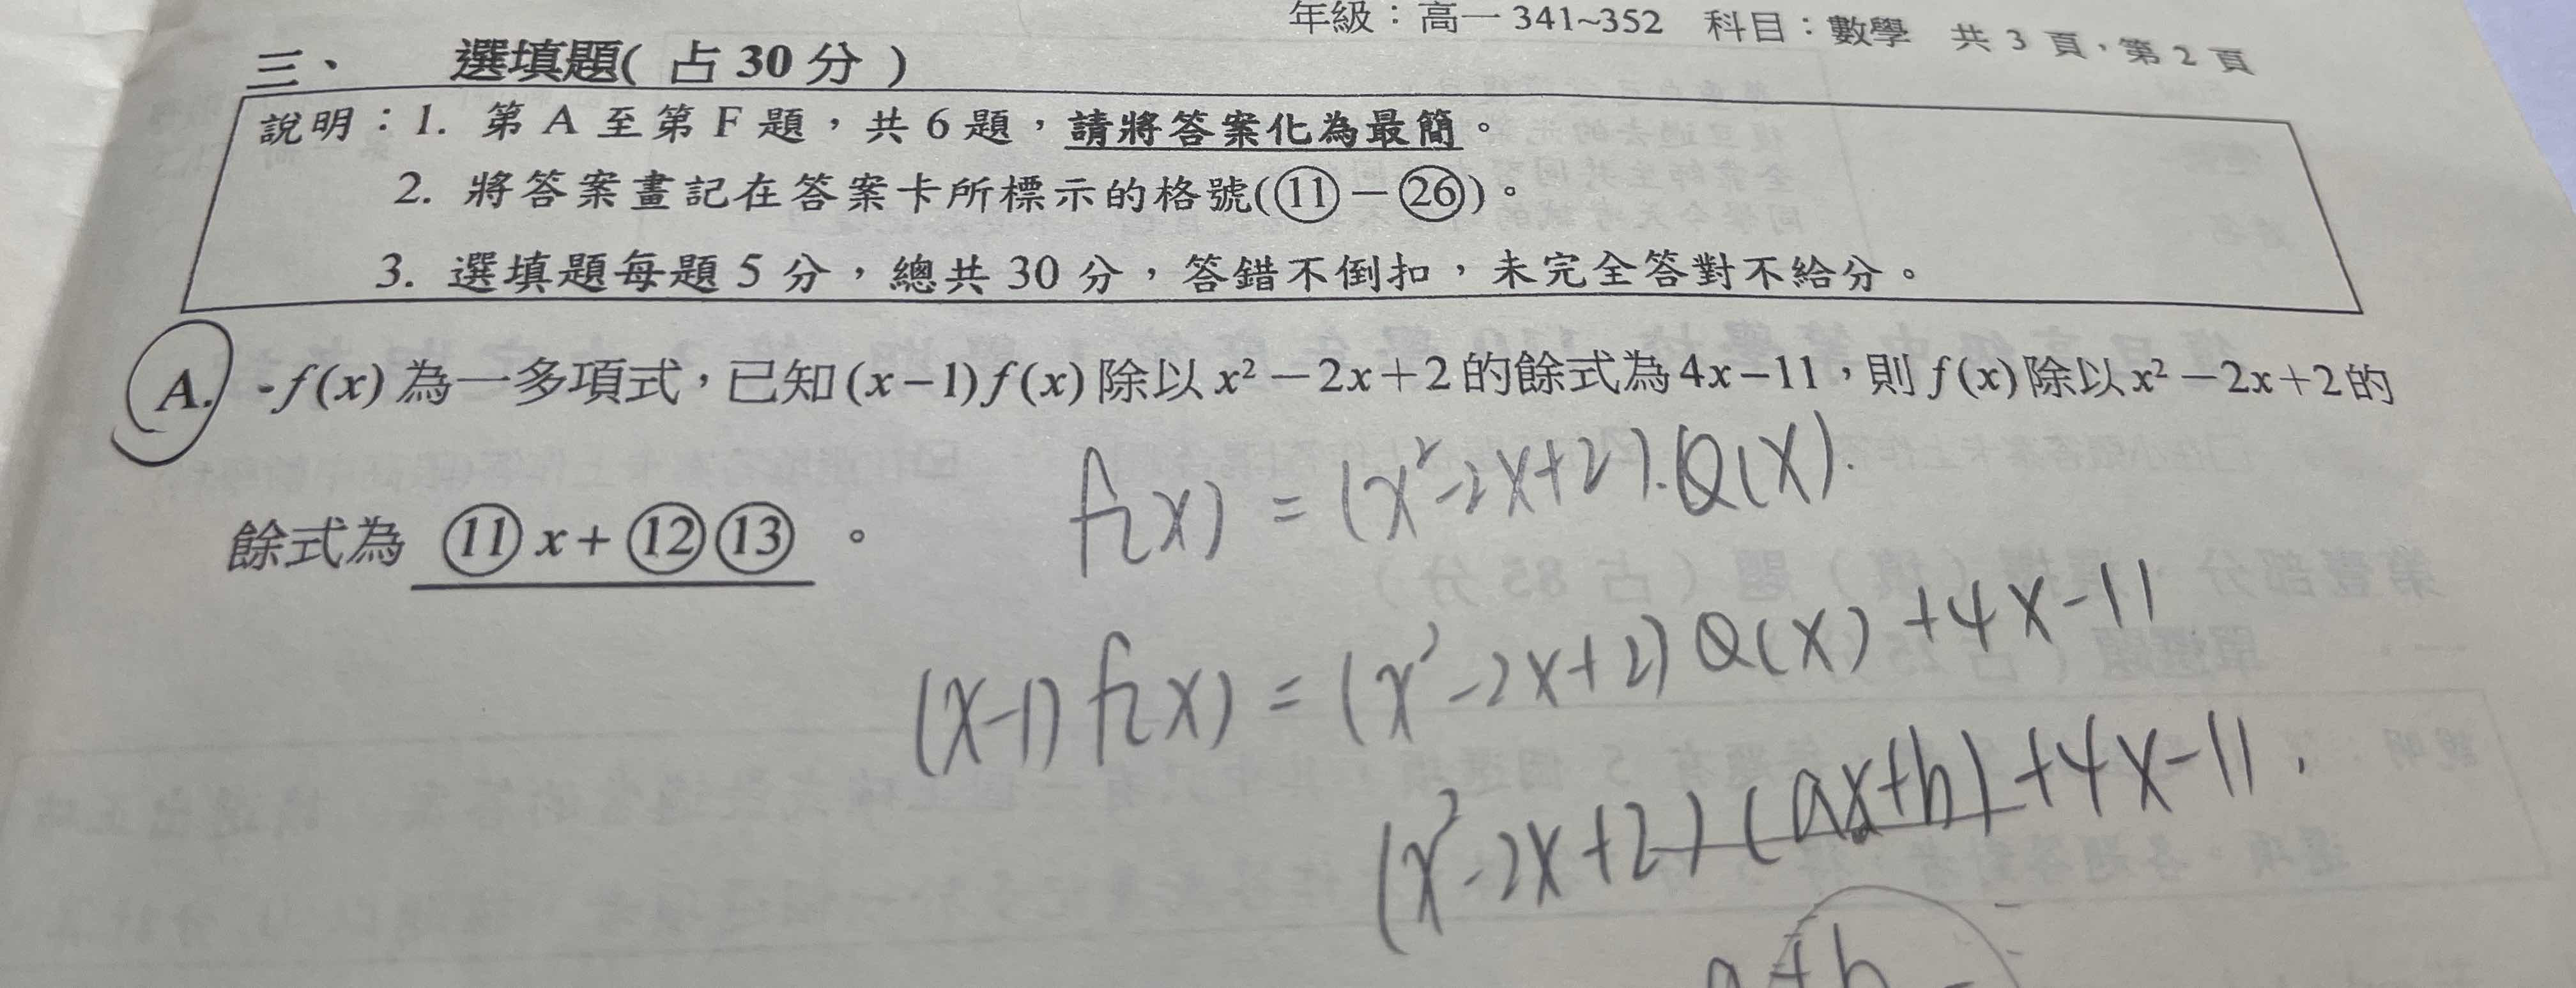 年級：高一 341~352 科目：數學 共 3 頁，第 2 頁
三、 選填題( 占 30 分 )
說明：1. 第 A 至第 F 題，共 6 題，請將答案化為最簡。
2. 將答案畫記在答案卡所標示的格號(⑪－㉖)。
3. 選填題每題 5 分，總共 30 分，答錯不倒扣，未完全答對不給分。
A. f(x) 為一多項式，已知 (x−1)f(x) 除以 x²－2x＋2 的餘式為 4x−11，則 f(x) 除以 x²－2x＋2 的
餘式為 ⑪ x + ⑫⑬ 。
f(x) = (x²-2x+2).Q(x).
(x-1) f(x) = (x²-2x+2) Q(x) +4x-11
(x²-2x+2) (ax+b) +4x-11.
a+b